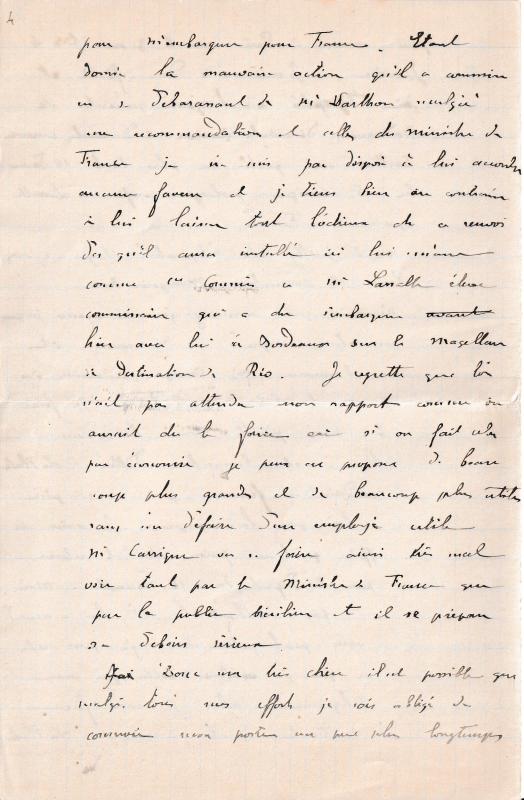 4
pour m'embarquer pour France. Etant
donné la mauvaise action qu'il a commise
en se débarassant de Mr Darthon malgré
ma recommandation et celle du ministre de
France je ne suis pas disposé à lui accorder
aucune faveur et je tiens bien au contraire
à lui laisser tout l'odieux de ce renvoi
dès qu'il aura installé ici lui même
comme Commis ce Mr Lassalle élève
commissaire qui a du s'embarquer avant
hier avec lui à Bordeaux sur le Magellan
à destination de Rio. Je regrette que l'on
n'ait pas attendu mon rapport comme on
aurait du le faire car si on fait cela
par économie je peux en proposer de beau
coup plus grandes et de beaucoup plus utiles
sans se défaire d'un employé utile
Mr Carrique va se faire ainsi très mal
voir tant par le Ministre de France que
par le public brésilien et il se prépare
des déboires sérieux.
Donc mon très cher il est possible que
malgré tous mes efforts je sois obligé de
conserver mon poste un peu plus longtemps